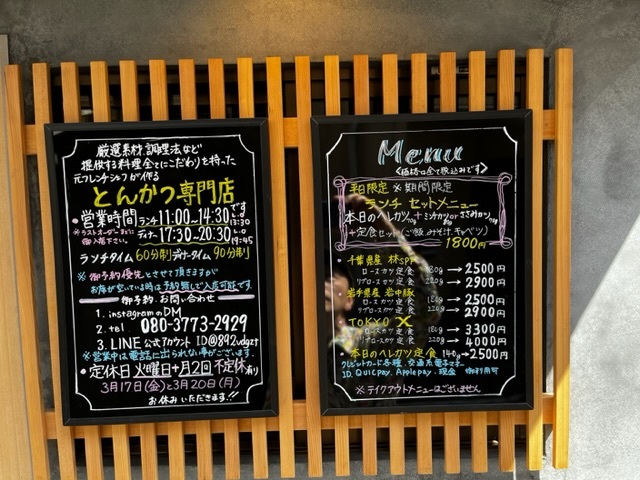 厳選素材、調理法など
提供する料理全てにこだわりを持った
元フレンチシェフが作る
とんかつ専門店です
●営業時間 ランチ 11:00〜14:30 L.O 13:30
※ラストオーダーまでに御入店下さい。 ディナー 17:30〜20:30 L.O 19:45
ランチタイム 60分制 ディナータイム 90分制
※御予約優先とさせて頂きますが
お席が空いている時は予約無しで入店可能です。
御予約、お問い合わせ
1. instagramのDM
2. tel 080-3773-2929
3. LINE 公式アカウント ID@892vdgzt
※営業中は電話に出られない事がございます。
●定休日 火曜日+月2回 不定休有り
3月17日(金)と3月20日(月)
お休みいただきます!!
Menu
<価格は全て税込みです>
平日限定 ※期間限定
ランチ セットメニュー
本日のヘレカツ+ミンチカツor
+定食セット(ご飯,みそ汁,キャベツ)
1800円
●千葉県産 林SPF
ロースカツ定食 180g → 2500円
リブロースカツ定食 220g → 2900円
●岩手県産 岩中豚
ロースカツ定食 180g → 2500円
リブロースカツ定食 220g → 2900円
●TOKYO X
ロースカツ定食 180g → 3300円
リブロースカツ定食 220g → 4000円
●本日のヘレカツ定食 140g → 2500円
クレジットカード各種、交通系電子マネー
ID, QUICpay, Applepay, 現金 御利用可
※テイクアウトメニューはございません